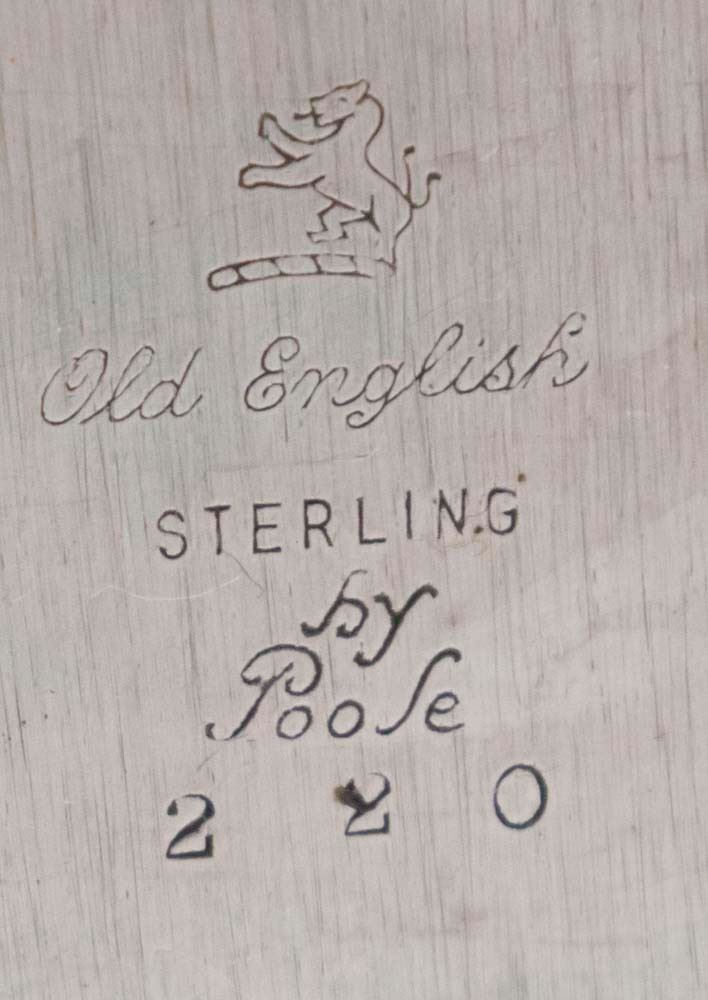 Old English
STERLING
by
Poole
2 2 0